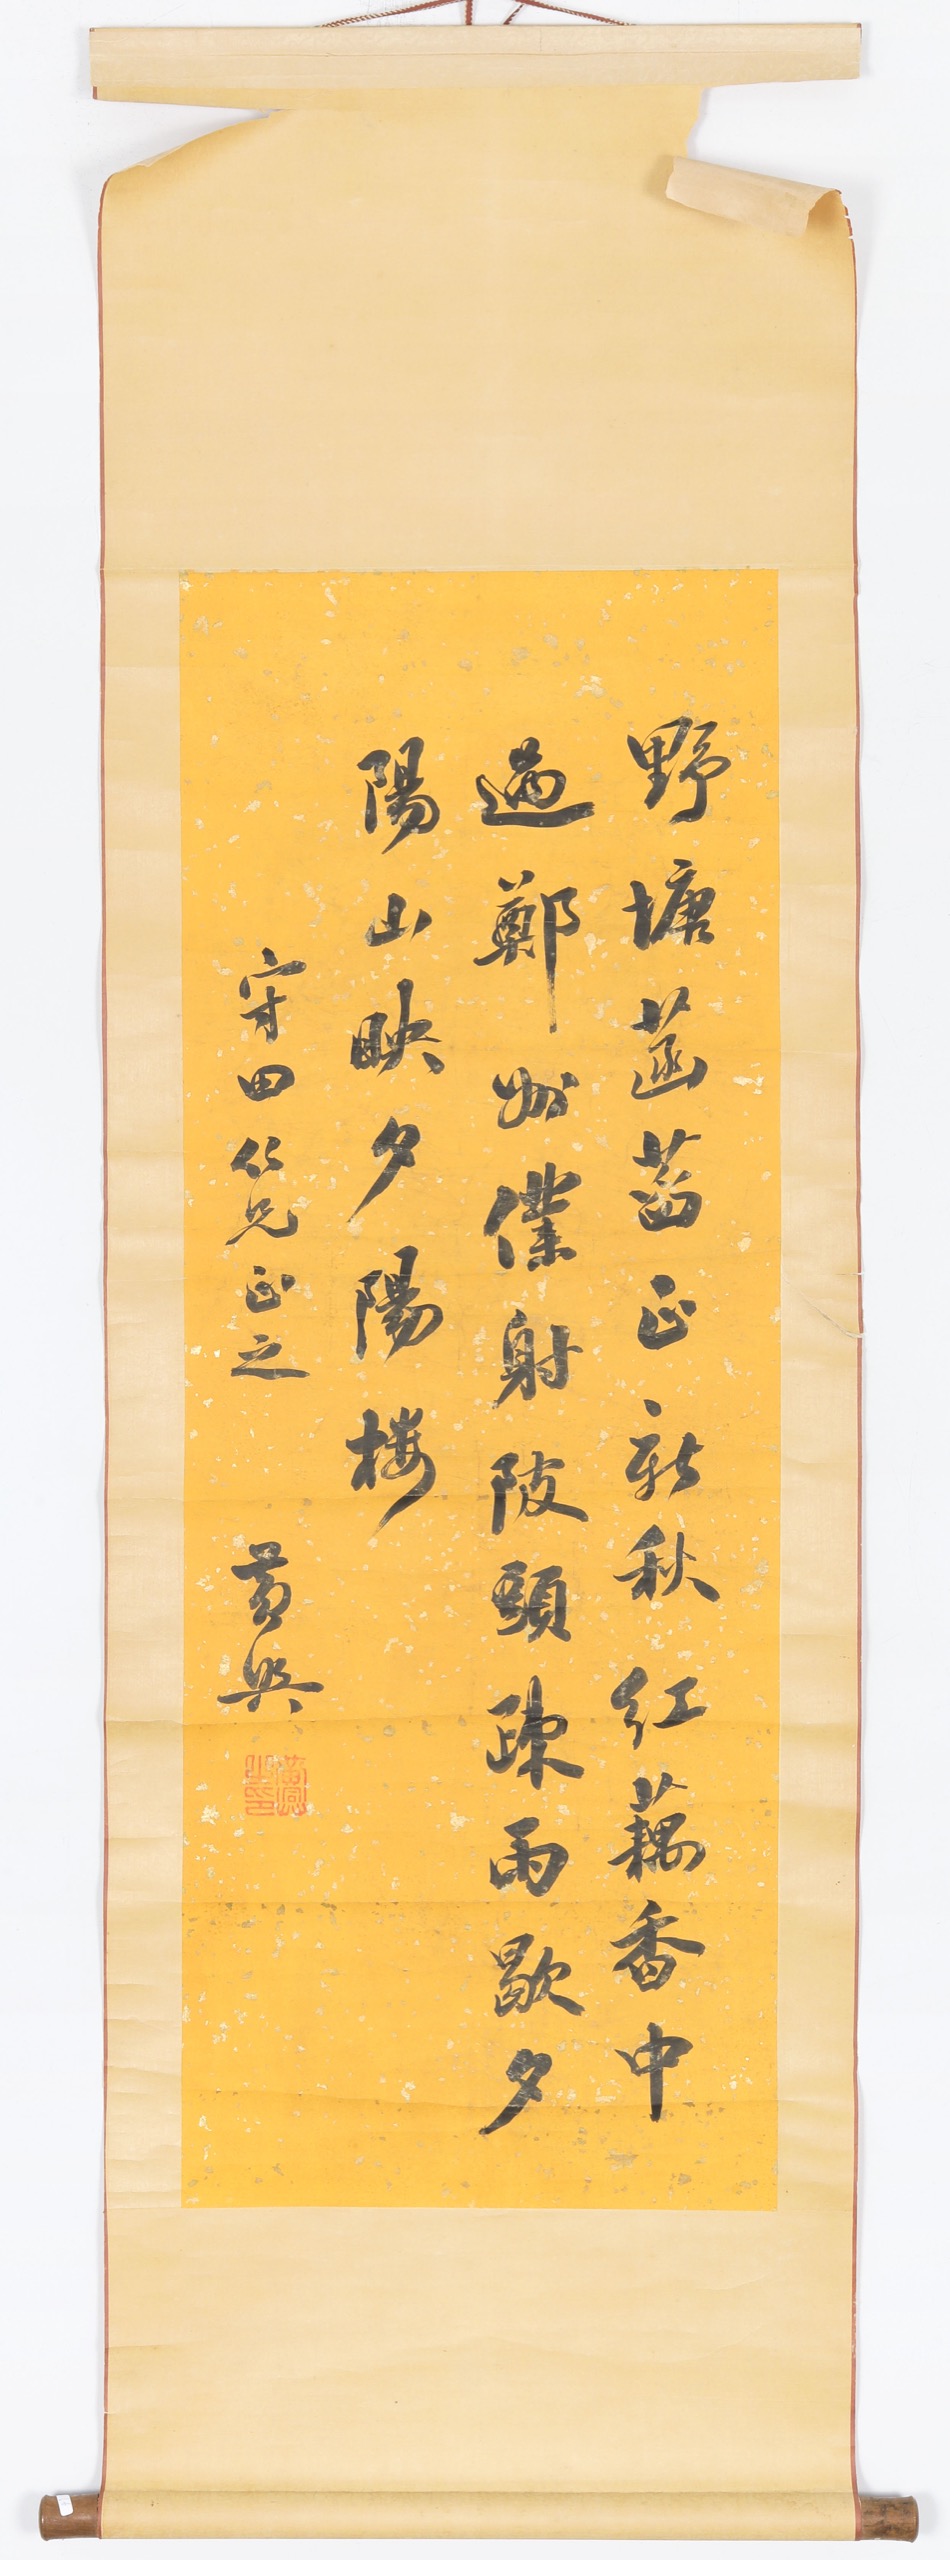 野塘菡萏正新秋紅藕香中
過鄭州僕射陂頭疎雨歇夕
陽山映夕陽樓
守田仁兄正之
黃興
黃興之印